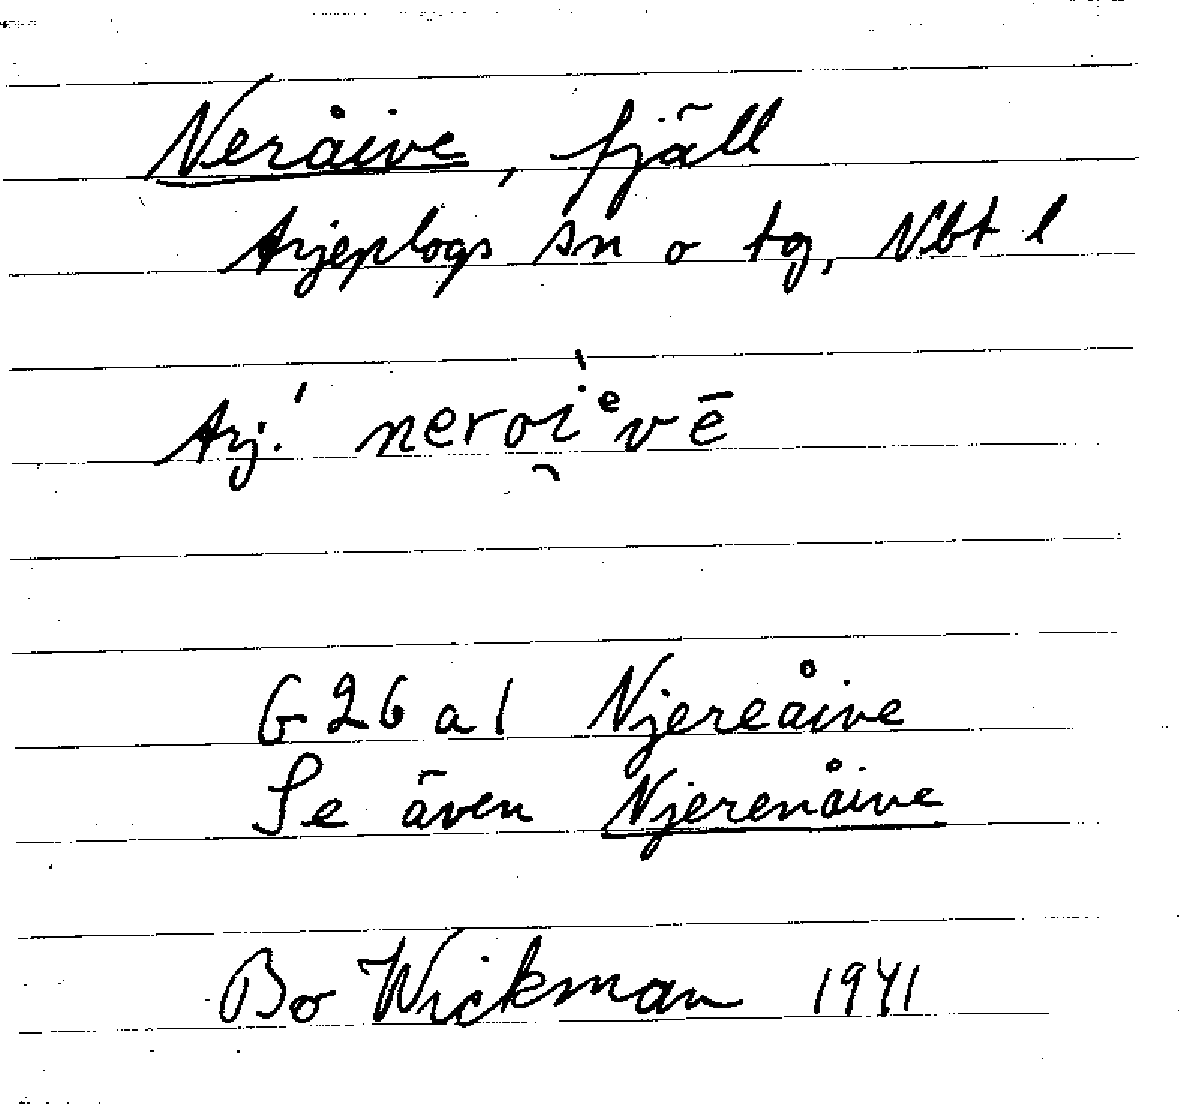 Neråive, fjäll
Arjeplogs sn o tg, Nbt l
Arj.
G 26 a 1 Njereåive
Se även Njerenåive
Bo Wickman 1941